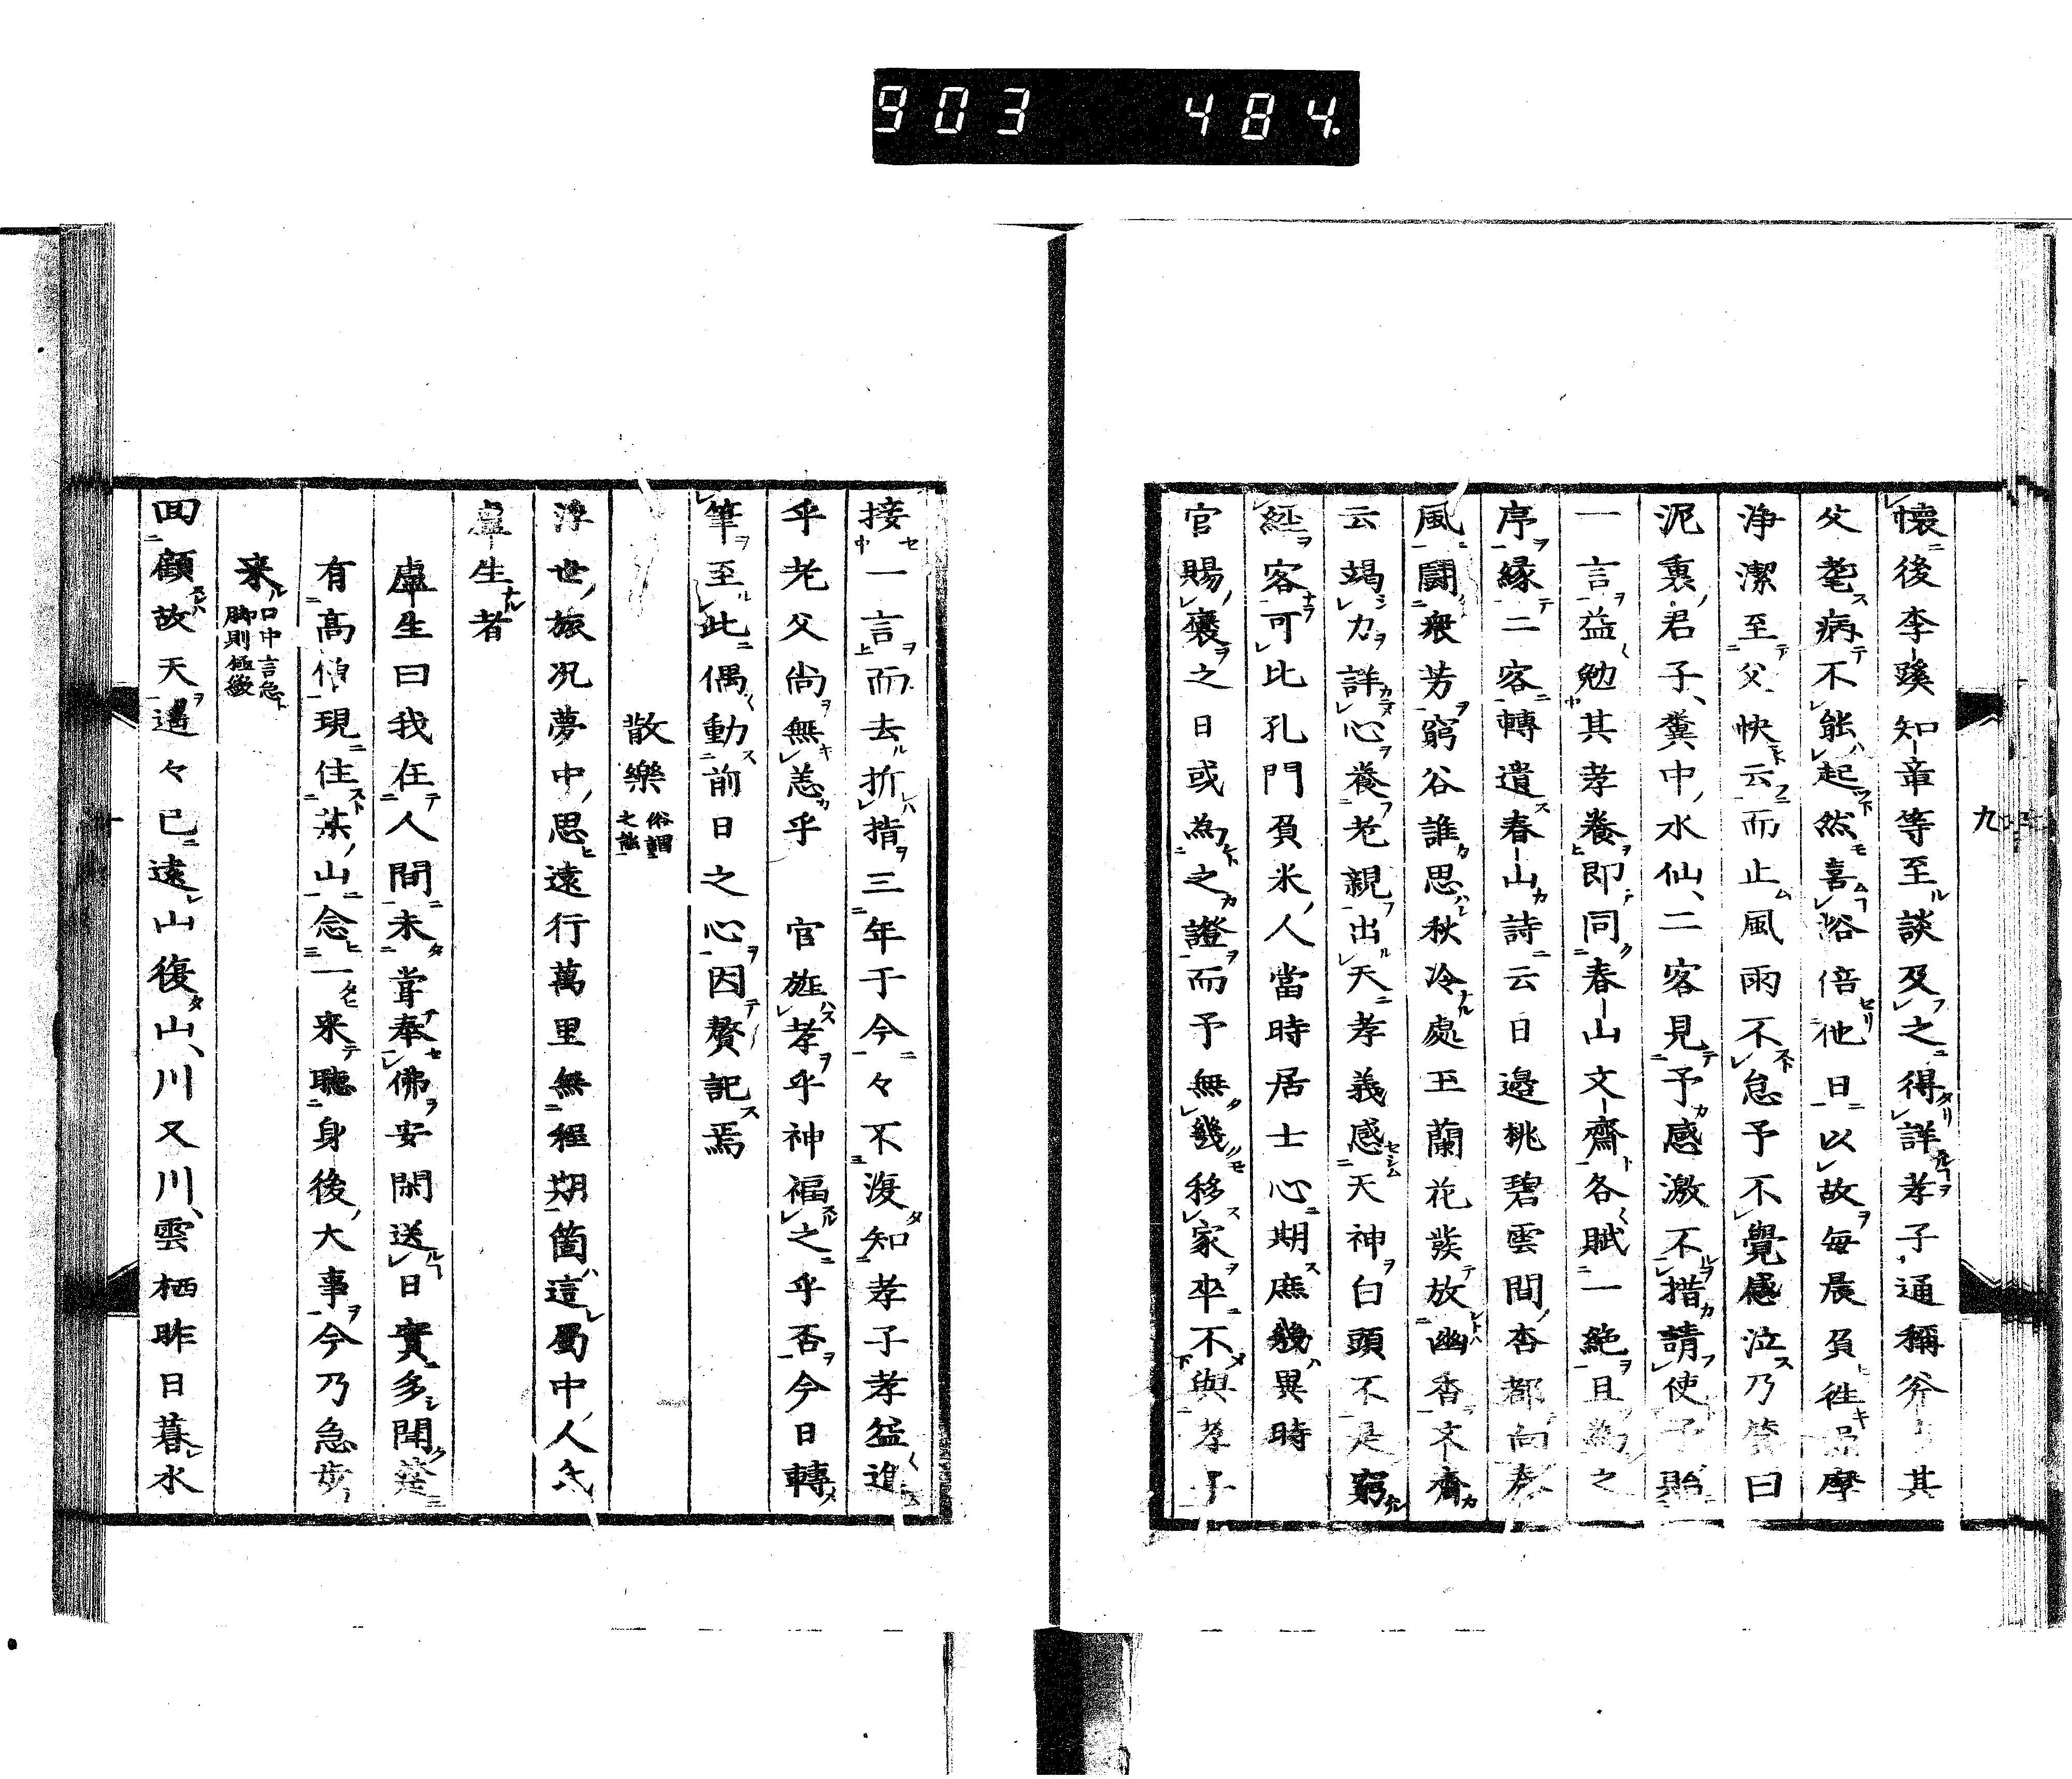 903 484
九
懷後李蹊知章等至談及之得詳孝子通稱斧其
父耄病不能起然喜浴倍他日以故每晨負往摩
浄潔至父快云而止風雨不怠予不覺感泣乃賛曰
泥裏君子糞中水仙二客見予感激不措請使予貽
一言益勉其孝養即同春山文齋各賦一絶且為之
序縁二客轉遺春山詩云日邊桃碧雲間杏都向春
風鬪衆芳窮谷誰思秋冷處玉蘭花發放幽香文齋
云竭力詳心養老親出天孝義感天神白頭不是窮
經客可比孔門負米人當時居士心期庶幾異時
官賜褒之日或為之證而予無幾移家卒不與孝子
接一言而去折指三年于今々不復知孝子孝益進
乎老父尚無恙乎 官旌孝乎神福之乎否今日轉
筆至此偶動前日之心因贅記焉
散樂 俗謂之能
浮世旅况夢中思遠行萬里無程期箇這蜀中人氏
盧生者
盧生曰我在人間未甞奉佛安閑送日實多聞楚
有高僧現住某山念一來聽身後大事今乃急歩
來 口中言急脚則極緩
回顧故天邁々已遠山復山川又川雲栖昨日暮水